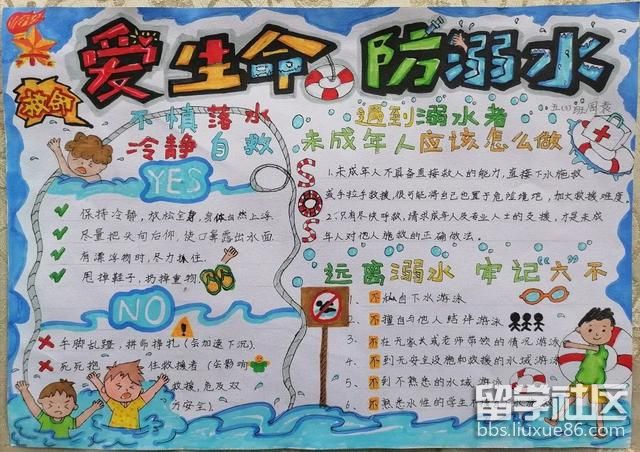 爱生命 防溺水
救命
五(5)班周袁
不慎落水
冷静自救
YES
保持冷静,放松全身,身体自然上浮.
尽量把头向后仰,使口鼻露出水面.
有漂浮物时,尽力抓住.
甩掉鞋子,扔掉重物.
NO
手脚乱蹬,拼命挣扎(会加速下沉).
死死抱 住救援者(会影响
救援,危及双
方安全).
遇到溺水者
未成年人应该怎么做
SOS
1.未成年人不具备直接救人的能力,直接下水施救
或手拉手救援,很可能将自己也置于危险境地,加大救援难度.
2.只有尽快呼救,请求成年人及专业人士的支援,才是未成
年人对他人施救的正确做法.
远离溺水 牢记“六”不
1、不私自下水游泳
2、不擅自与他人结伴游泳
3、不在无家长或老师带领的情况游泳
4、不到无安全设施和救援的水域游泳
5、不到不熟悉的水域游泳
6、不熟悉水性的学生不
留学社区
bbs.liuxue86.com